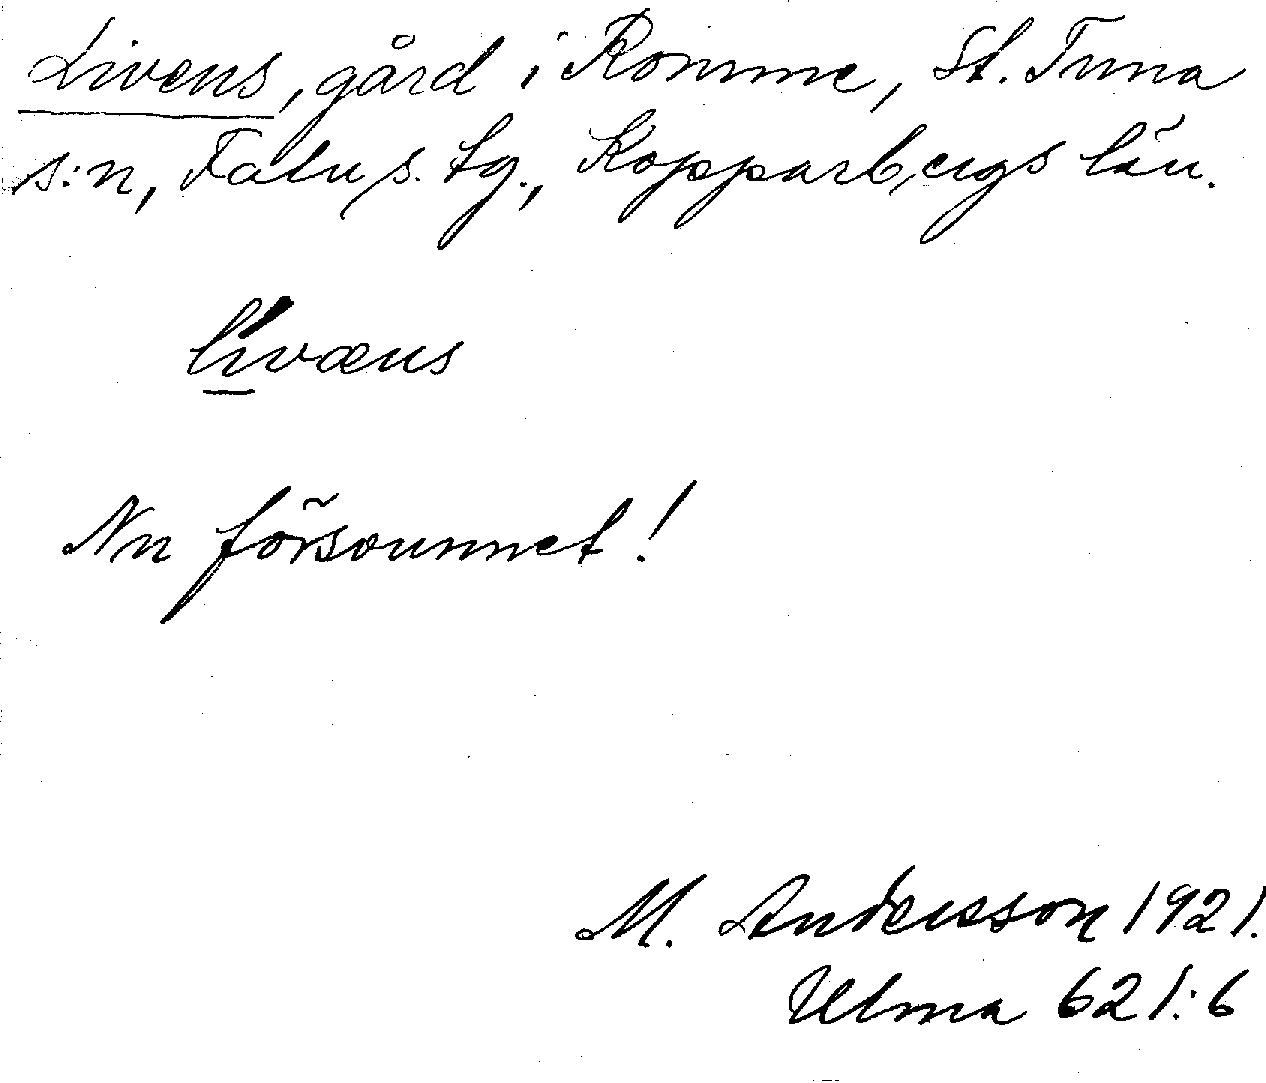 Livens, gård i Romme, St. Tuna
s:n, Falu s. tg., Kopparbergs län.
lívæns
Nu försvunnet!
M. Andersson 1921.
Ulma 621:6